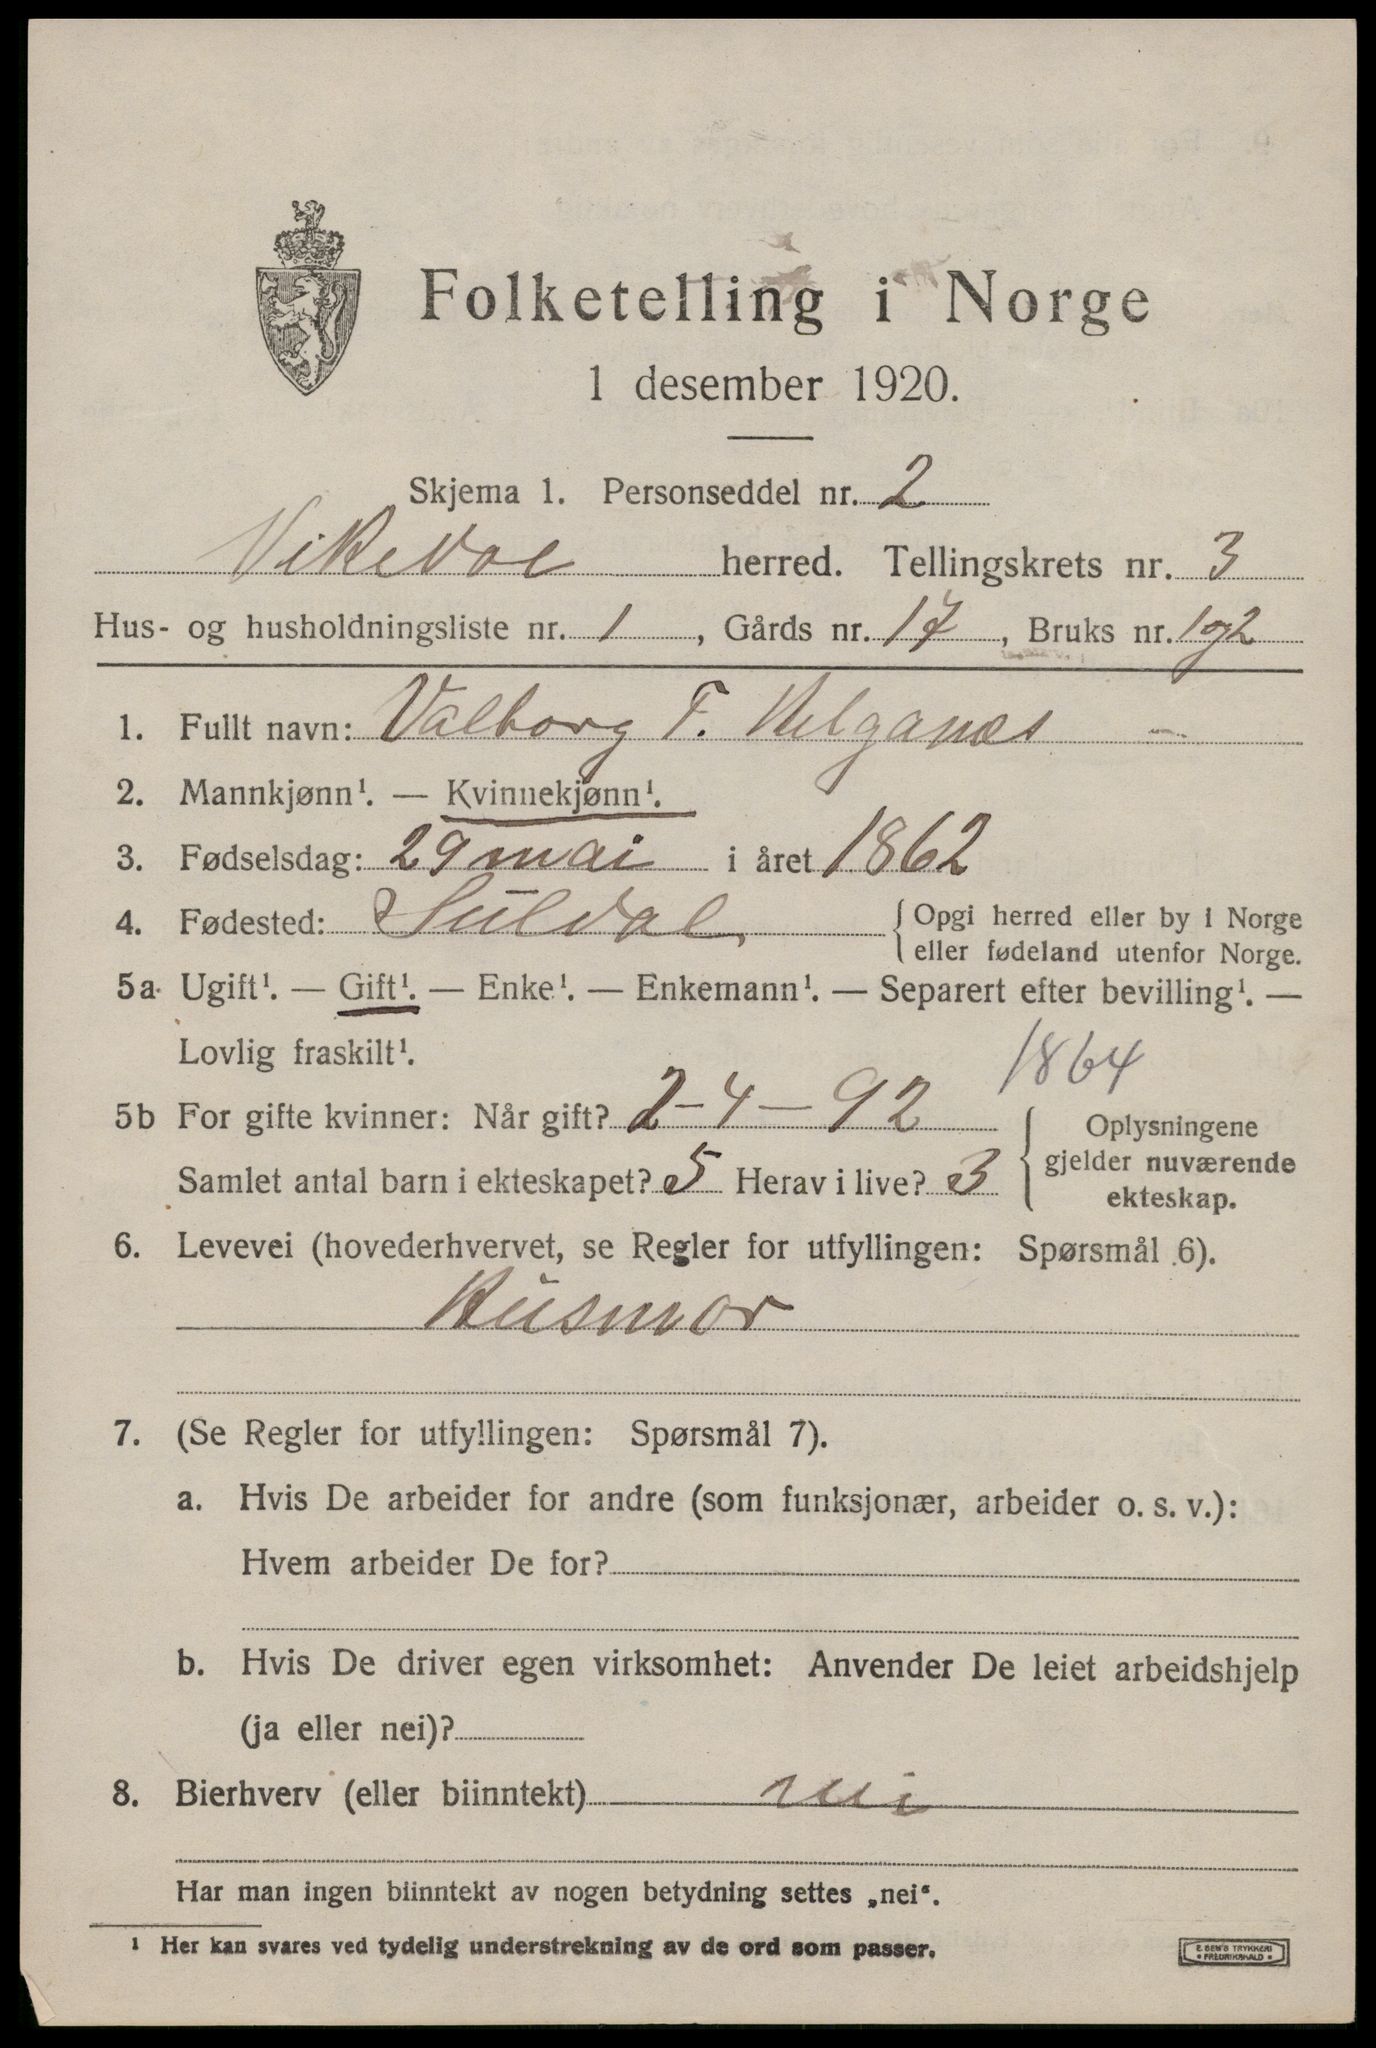 Folketelling i Norge
1 desember 1920.
Skjema 1. Personseddel nr. 2
Vikedal herred. Tellingskrets nr. 3
Hus- og husholdningsliste nr. 1, Gårds nr. 17, Bruks nr. 1og2
1. Fullt navn: Valborg T. Helganæs
2. Mannkjønn¹. — Kvinnekjønn¹.
3. Fødselsdag: 29 mai i året 1862
4. Fødested: Suldal, { Opgi herred eller by i Norge
eller fødeland utenfor Norge.
5a Ugift¹. — Gift¹. — Enke¹. — Enkemann¹. — Separert efter bevilling¹. —
Lovlig fraskilt¹. 1864
5b For gifte kvinner: Når gift? 2-4-92 { Oplysningene
gjelder nuværende
ekteskap.
Samlet antal barn i ekteskapet? 5 Herav i live? 3
6. Levevei (hovederhvervet, se Regler for utfyllingen: Spørsmål 6).
Husmor
7. (Se Regler for utfyllingen: Spørsmål 7).
a. Hvis De arbeider for andre (som funksjonær, arbeider o. s. v.):
Hvem arbeider De for?
b. Hvis De driver egen virksomhet: Anvender De leiet arbeidshjelp
(ja eller nei)?
8. Bierhverv (eller biinntekt) nei
Har man ingen biinntekt av nogen betydning settes „nei“.
¹ Her kan svares ved tydelig understrekning av de ord som passer.
E. SEM'S TRYKKERI
• FREDRIKSHALD •